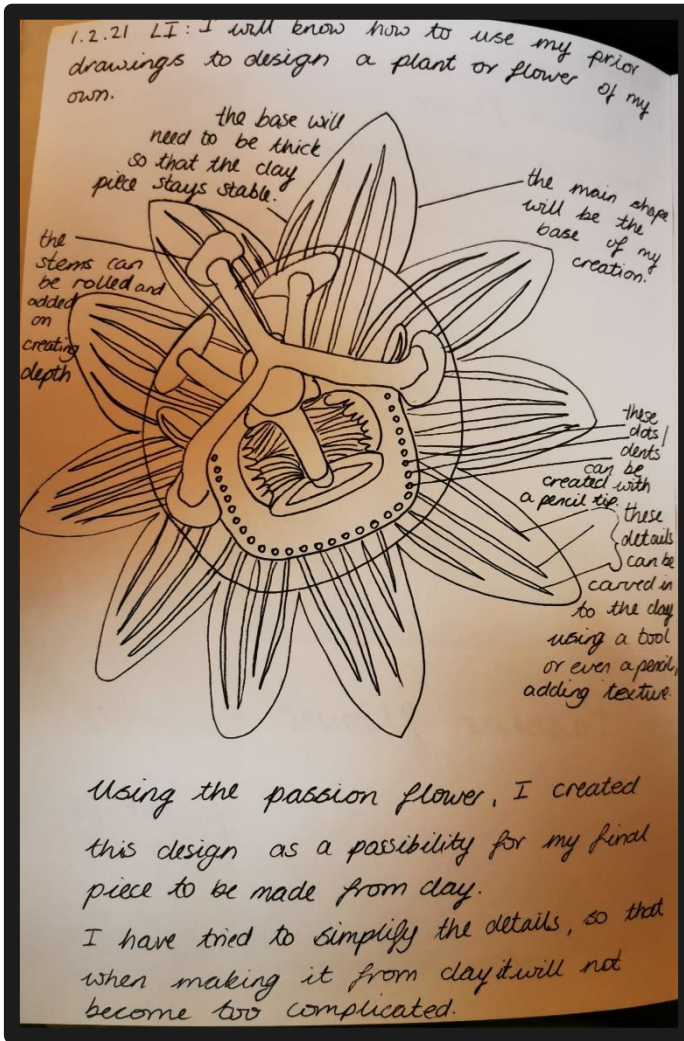 1.2.21 LI: I will know how to use my prior
drawings to design a plant or flower of my
own.
the base will
need to be thick
so that the clay
piece stays stable.
the main shape
will be the
base of my
creation.
the
stems can
be rolled and
added
on
creating
depth
these
dots/
dents
can be
created with
a pencil tip.
these
details
can be
carved in
to the clay
using a tool
or even a pencil,
adding texture.
Using the passion flower, I created
this design as a possibility for my final
piece to be made from clay.
I have tried to simplify the details, so that
when making it from clay it will not
become too complicated.